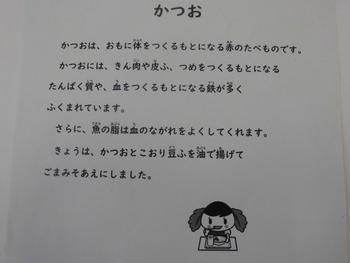 かつお
かつおは、おもに体をつくるもとになる赤のたべものです。
かつおには、きん肉や皮ふ、つめをつくるもとになる
たんぱく質や、血をつくるもとになる鉄が多く
ふくまれています。
さらに、魚の脂は血のながれをよくしてくれます。
きょうは、かつおとこおり豆ふを油で揚げて
ごまみそあえにしました。